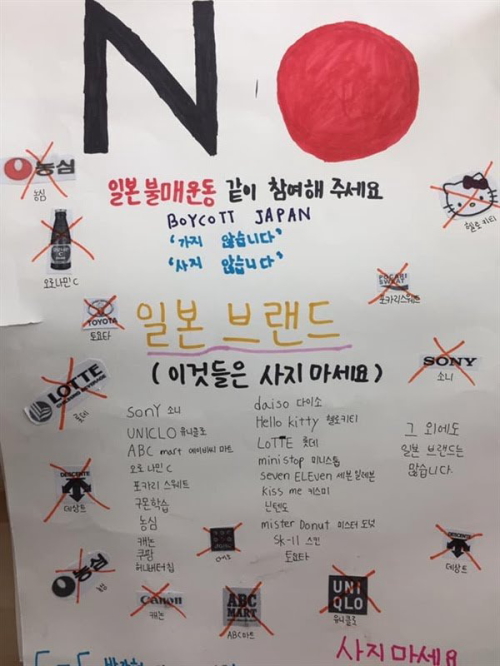 NO
일본불매운동 같이 참여해 주세요
BOYCOTT JAPAN
'가지 않습니다'
'사지 않습니다'
농심
농심
오로나민 C
헬로키티
POCARI SWEAT
포카리스웨트
TOYOTA
토요타
일본 브랜드
(이것들은 사지 마세요)
LOTTE
롯데
SONY
소니
sony 소니
UNICLO 유니클로
ABC mart 에이비씨 마트
오로나민 C
포카리 스웨트
구몬학습
농심
캐논
쿠팡
허니버터칩
daiso 다이소
Hello kitty 헬로키티
LOTTE 롯데
ministop 미니스톱
seven ELEven 세븐 일레븐
kiss me 키스미
닌텐도
mister Donut 미스터 도넛
SK-II
토요타
그 외에도
일본 브랜드는
많습니다.
DESCENTE
데상트
DESCENTE
데상트
농심
Canon
캐논
ABC MART
ABC마트
UNI QLO
유니클로
사지마세요